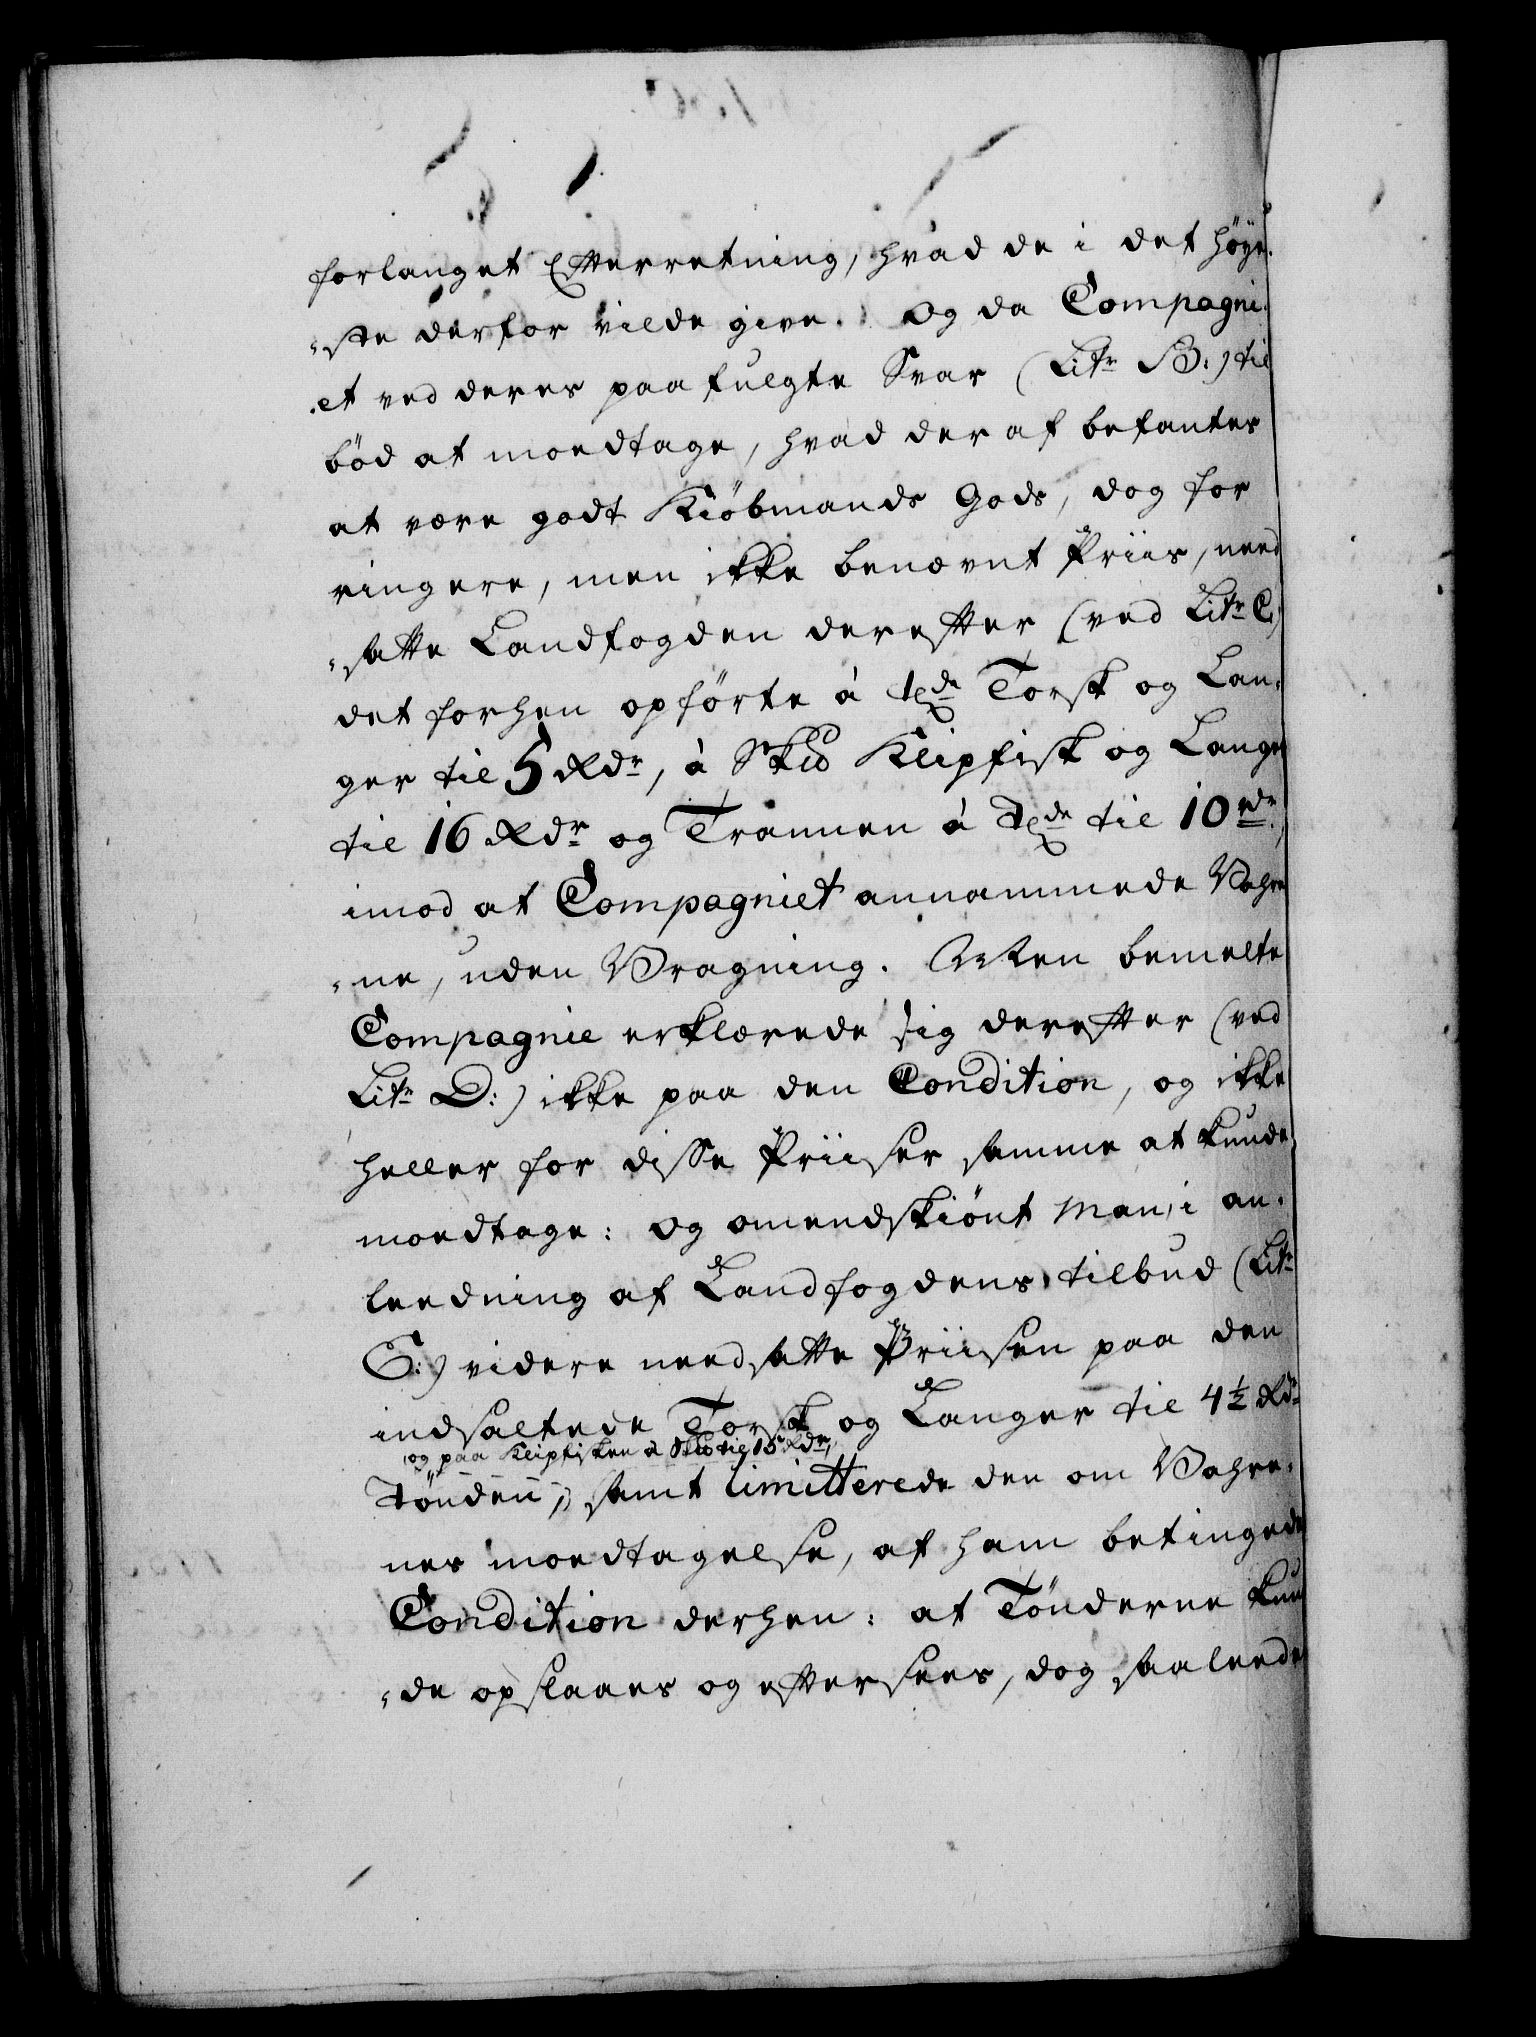 forlanget Efterretning, hvad de i det höye-
„ste derfor vilde give. Og da Compagni-
„et ved deres paafulgte Svar (Litr B:) til
böd at modtage, hvad der af befantes
at være godt Kiöbmands Gods, dog for
ringere, men ikke benævnt Priis, need
„satte Landfogden derefter (ved Litr C:)
det forhen opförte à Tde Torsk og Lan-
ger til 5 Rdr, à Skd Klipfisk og Langer
til 16 Rdr og Trannen à Tde til 10 rdr,
imod at Compagniet annammede Vahre
„ne, uden Vragning. Men bemelte
Compagnie erklærede sig derefter (ved
Litr D:) ikke paa den Condition, og ikke
heller for disse Priiser samme at kunde
modtage: og omendskiönt man, i an-
leedning af Landfogdens tilbud (Litr
E:) videre needsatte Priisen paa den
indsaltede Torsk og Langer til 4½ Rdr
og paa Klipfisken à Skd til 15 Rdr,
Tönden, samt limitterede den om Vahre-
nes modtagelse, af ham betingede
Condition derhen: at Tönderne kun
„de opslaaes og eftersees, dog saaleedes